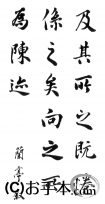 及其所之既
係之矣向之所
為陳迹
蘭亭敘
(C)お手本.com